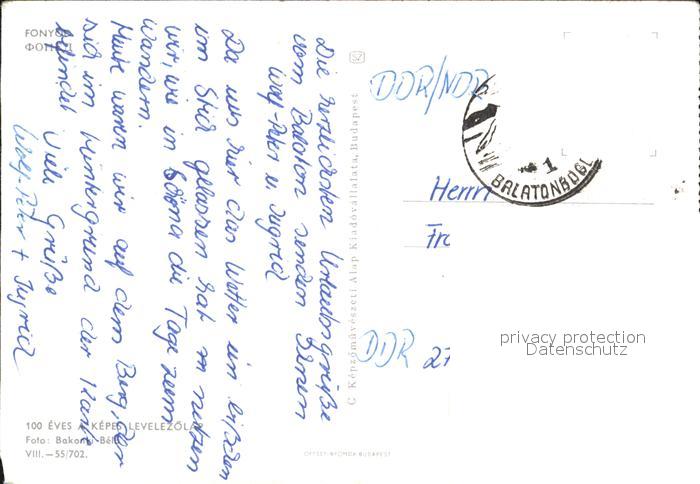 FONYÓD
ФОНЬОД
Die herzlichsten Urlaubsgrüße
vom Balaton senden Ihnen
Wolf-Peter u. Ingrid
Da uns hier das Wetter ein bißchen
im Stich gelassen hat, nutzen
wir, wie in Schöna die Tage zum
Wandern.
Heute waren wir auf dem Berg, der
sich im Hintergrund der Karte
befindet. Viele Grüße
Wolf-Peter + Ingrid
100 ÉVES A KÉPES LEVELEZŐLAP
Foto: Bakonyi Béla
VIII.—55/702.
© Képzőművészeti Alap Kiadóvállalata, Budapest
OFFSET-NYOMDA BUDAPEST
DDR/NDR
1
BALATONBOGL
Herrn
Fra
DDR 27
privacy protection
Datenschutz